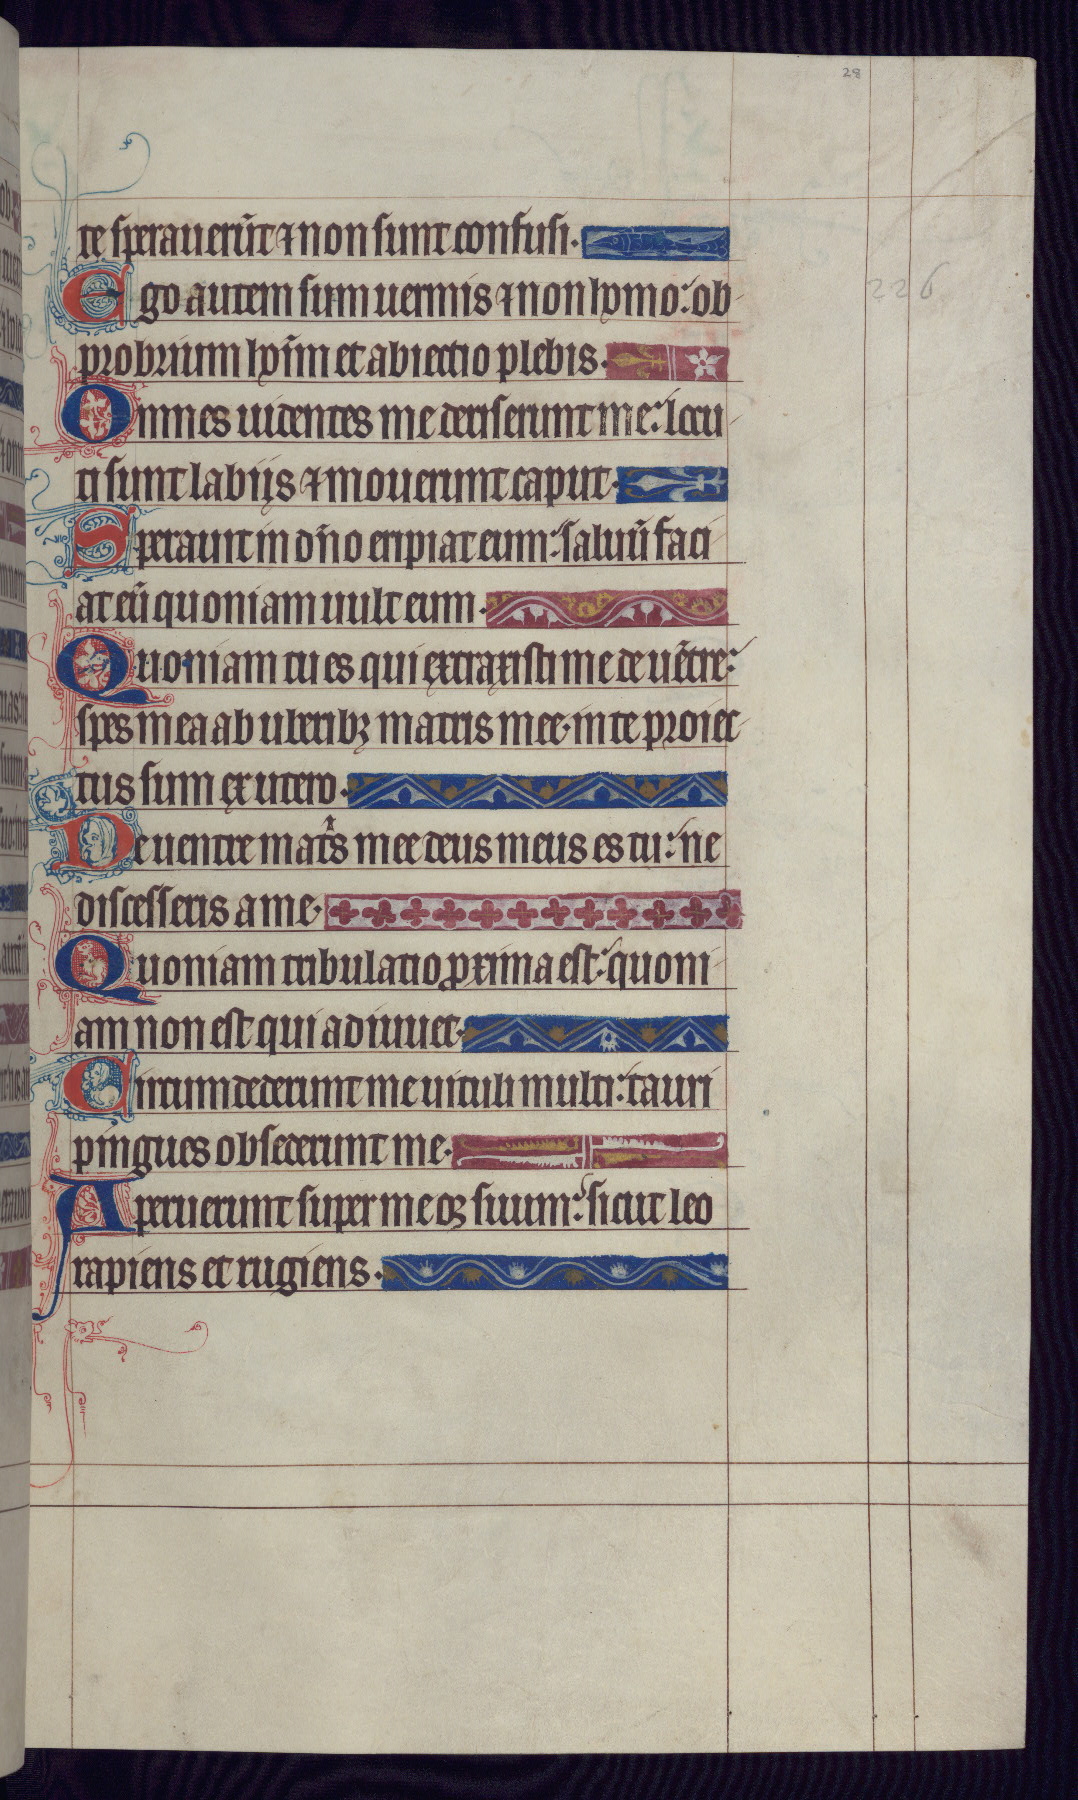 28
te sperauerūt ⁊ non sunt confusi.
Ego autem sum uermis ⁊ non homo: ob
226
probrium hoīm et abiectio plebis.
Omnes uidentes me deriserunt me: locu
ti sunt labijs ⁊ mouerunt caput.
Sperauit in dn̄o eripiat eum: saluū faci
at eū quoniam uult eum.
Quoniam tu es qui extraxisti me de uētre:
spes mea ab uberibꝫ matris mee. in te proiec
tus sum ex utero.
De uentre mat̄s mee deus meus es tu: ne
discesseris a me.
Quoniam tribulatio ꝓxima est: quoni
am non est qui adiuuet.
Circumdederunt me uituli multi: tauri
pingues obsederunt me.
Aperuerunt super me os suum: sicut leo
rapiens et rugiens.